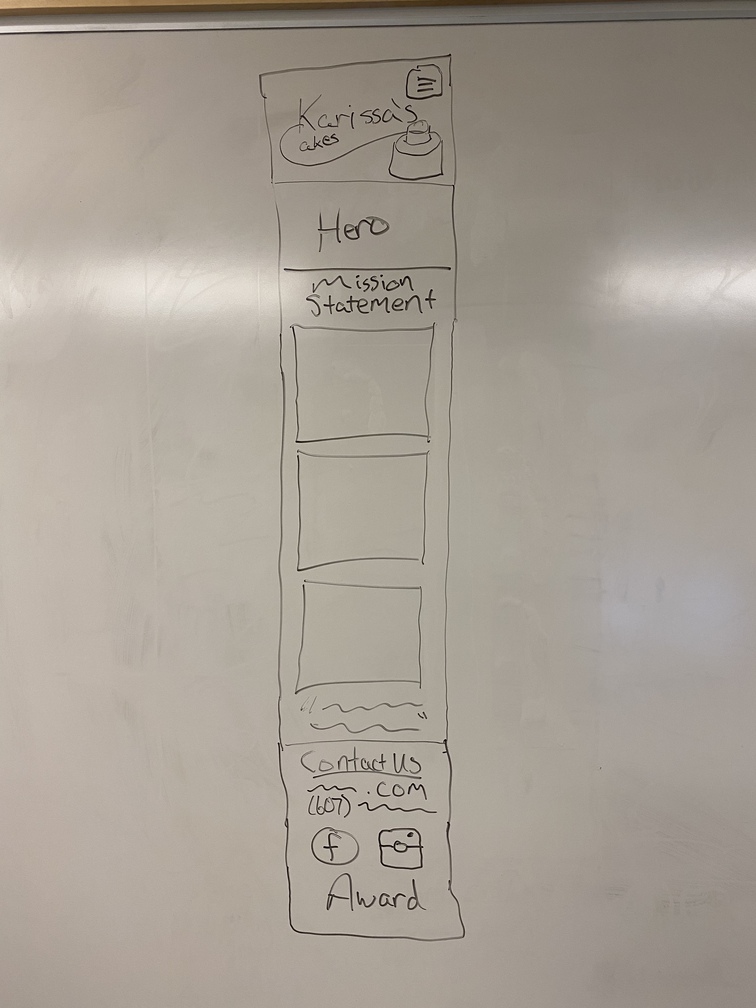 Karissa's
cakes
Hero
Mission
Statement
Contact Us
.com
(607)
f
Award